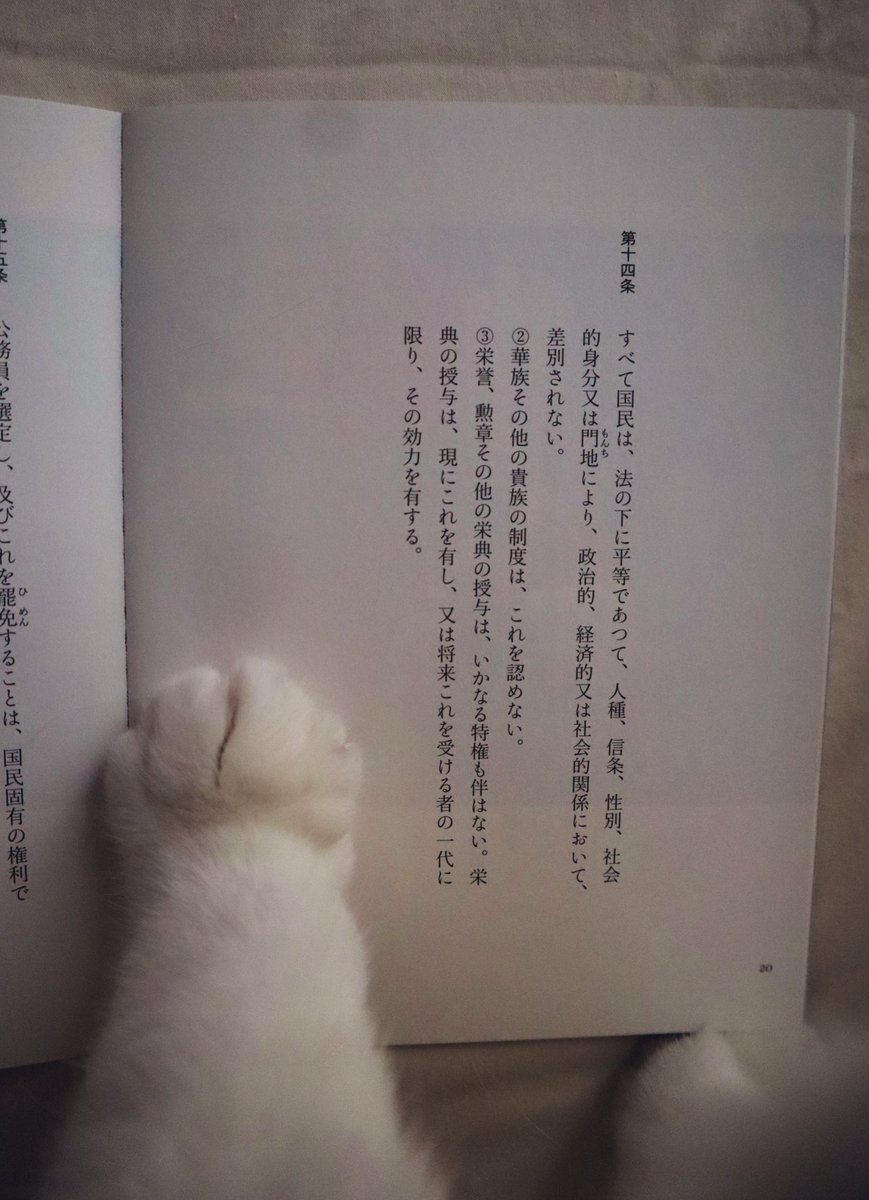 第十四条
すべて国民は、法の下に平等であつて、人種、信条、性別、社会
的身分又は門地により、政治的、経済的又は社会的関係において、
もんち
差別されない。
②華族その他の貴族の制度は、これを認めない。
③栄誉、勲章その他の栄典の授与は、いかなる特権も伴はない。栄
典の授与は、現にこれを有し、又は将来これを受ける者の一代に
限り、その効力を有する。
20
第十五条
公務員を選定し、及びこれを罷免することは、国民固有の権利で
ひめん